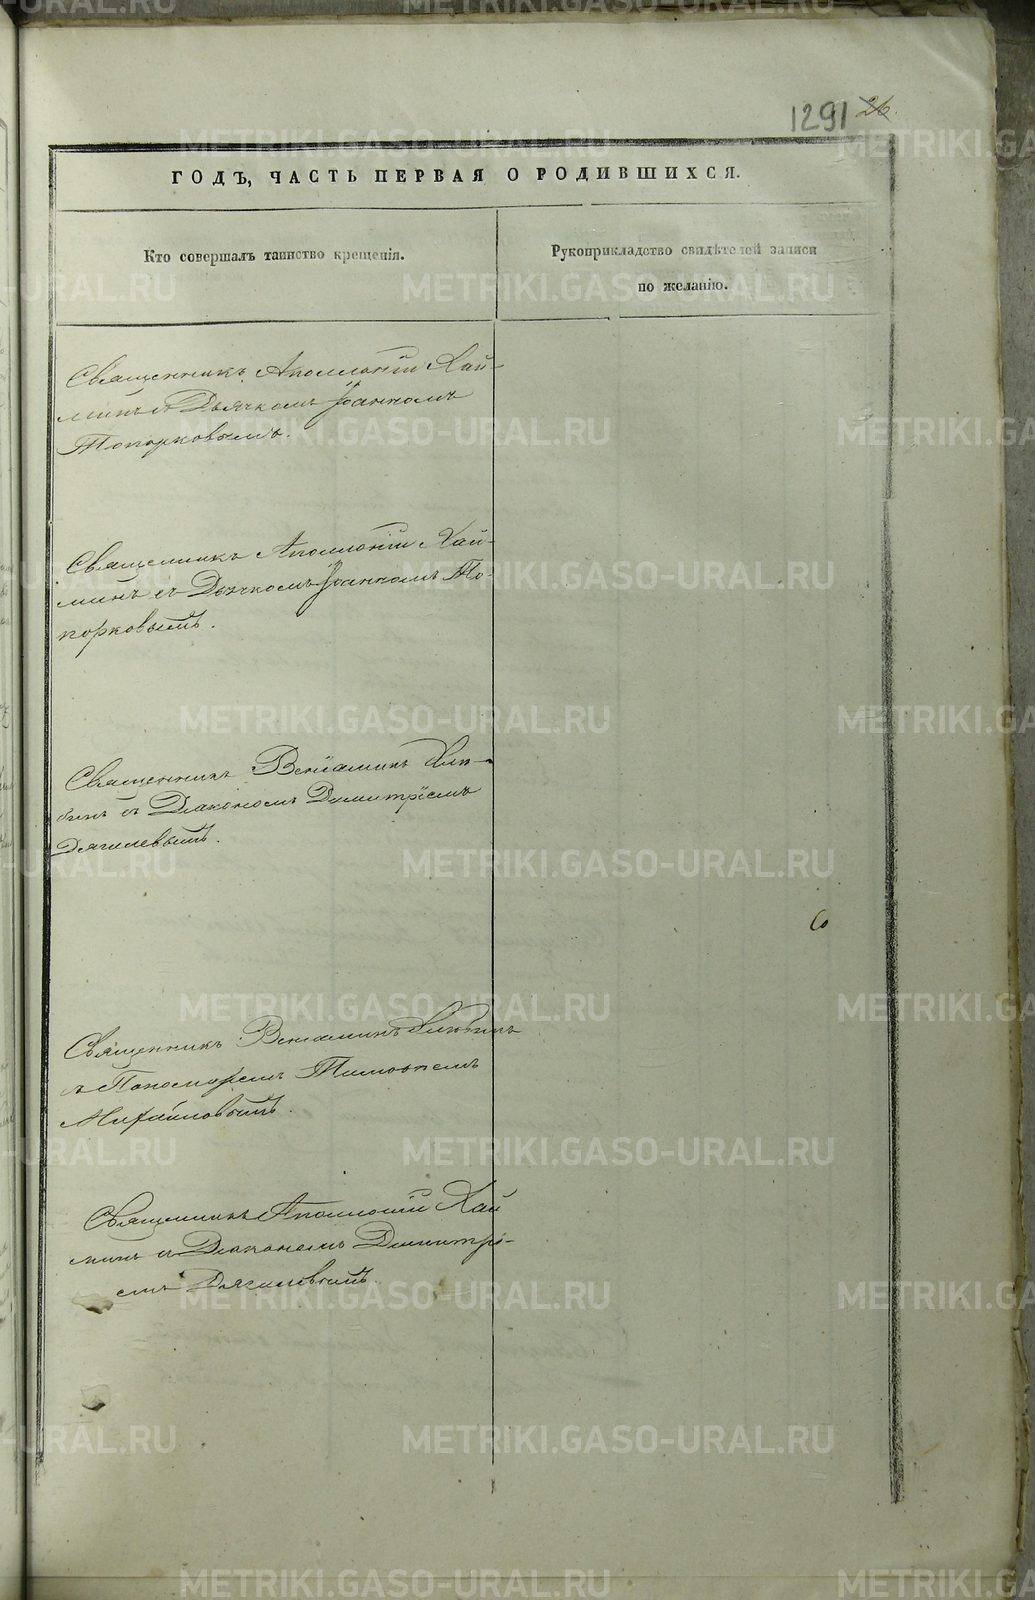 1291 26.
ГОДЪ, ЧАСТЬ ПЕРВАЯ О РОДИВШИХСЯ.
Кто совершалъ таинство крещенія.
Рукоприкладство свидѣтелей записи
по желанію.
Священникъ Аполлоній Хай-
минъ съ Дьячкомъ Іоанномъ
Топорковымъ.
Священникъ Аполлоній Хай-
минъ съ Дьячкомъ Іоанномъ То-
порковымъ.
Священникъ Веніаминъ
съ Діакономъ Димитріемъ
Дягилевымъ.
Священникъ Веніаминъ
съ Пономаремъ Тимофеемъ
Михайловымъ.
Священникъ Аполлоній Хай
минъ съ Діакономъ Димитрі-
емъ Дягилевымъ.
METRIKI.GASO-URAL.RU